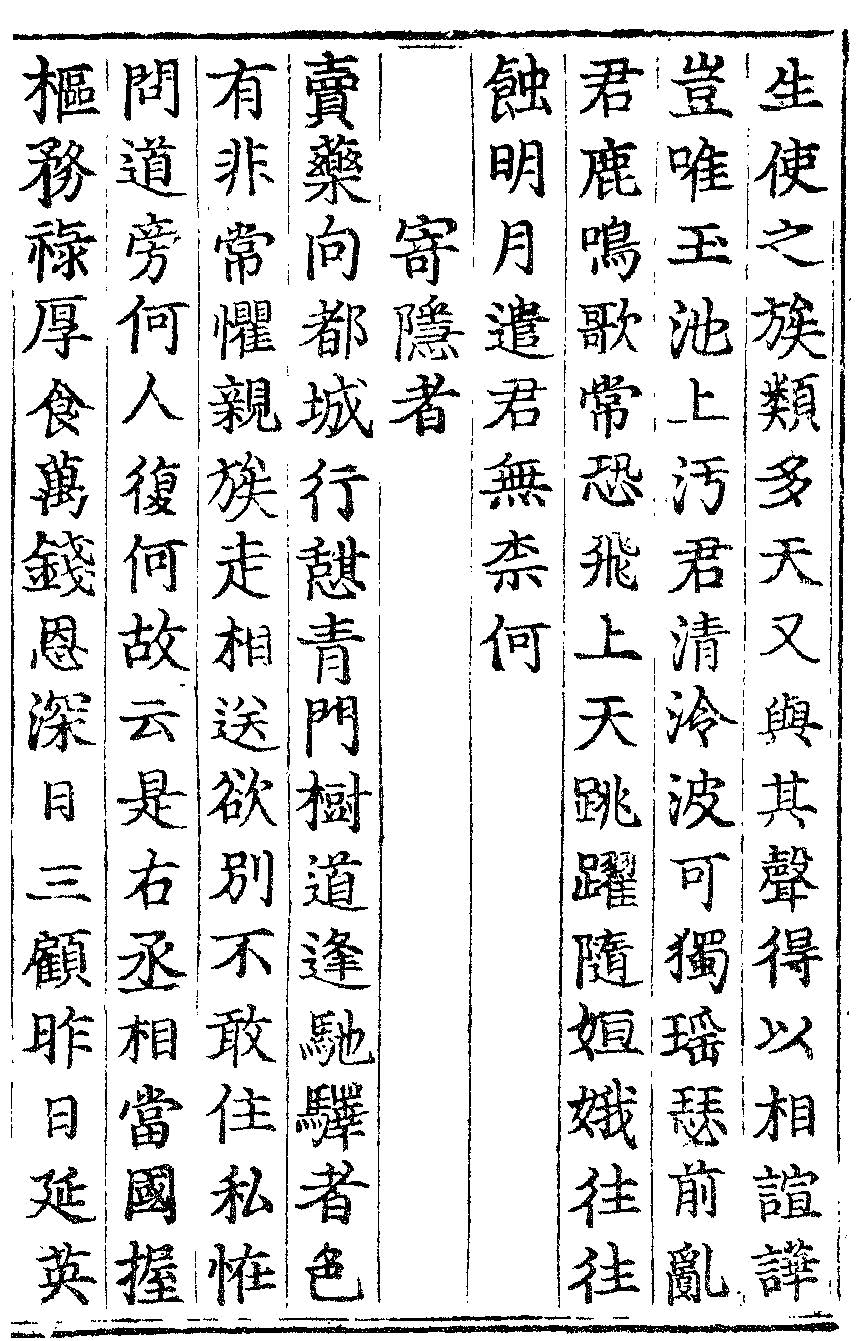 生使之族類多天又與其聲得以相諠譁
豈唯玉池上汚君清泠波可獨瑶瑟前亂
君鹿鳴歌常恐飛上天跳躍隨姮娥往往
蝕明月遣君無柰何
寄隱者
賣藥向都城行憇青門樹道逢馳驛者色
有非常懼親族走相送欲別不敢住私恠
問道旁何人復何故云是右丞相當國握
樞務祿厚食萬錢恩深日三顧昨日延英